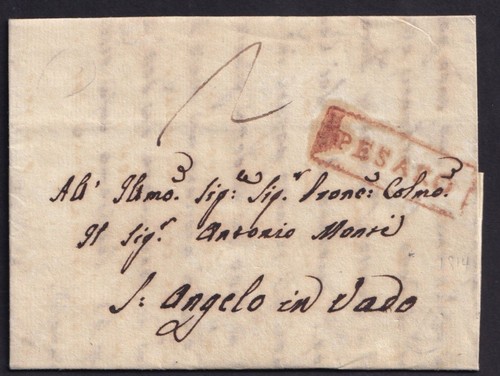 PESARO
All' Illmo. Sig.re Sig.r Prone: Colmo.
Il Sig.r Antonio Monti
S: Angelo in Vado
1814